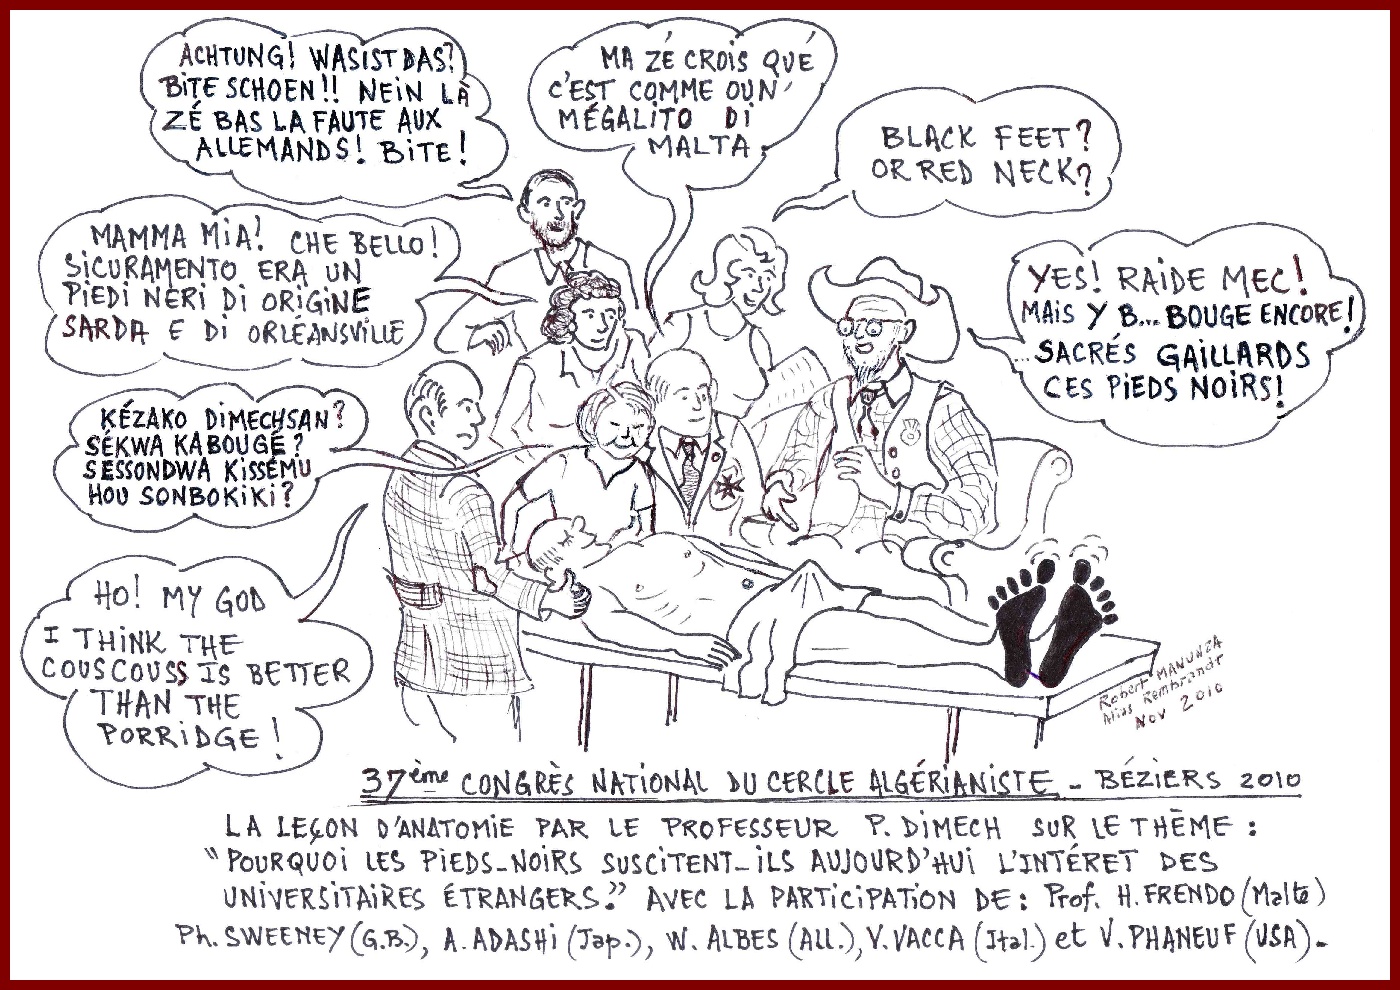 ACHTUNG! WAS IST DAS?
BITE SCHOEN!! NEIN LÀ
ZÉ BAS LA FAUTE AUX
ALLEMANDS! BITE!
MA ZÉ CROIS QUÉ
C'EST COMME OUN'
MÉGALITO DI
MALTA.
BLACK FEET?
OR RED NECK?
MAMMA MIA! CHE BELLO!
SICURAMENTO ERA UN
PIEDI NERI DI ORIGINE
SARDA E DI ORLÉANSVILLE
YES! RAIDE MEC!
MAIS Y B... BOUGE ENCORE!
...SACRÉS GAILLARDS
CES PIEDS NOIRS!
KÉZAKO DIMECHSAN?
SÉKWA KABOUGÉ?
SESSONDWA KISSÉMU
HOU SONBOKIKI?
HO! MY GOD
I THINK THE
COUSCOUSS IS BETTER
THAN THE
PORRIDGE!
Robert MANUNZA
Alias Rembrandt
Nov 2010
37ème CONGRÈS NATIONAL DU CERCLE ALGÉRIANISTE - BÉZIERS 2010
LA LEÇON D'ANATOMIE PAR LE PROFESSEUR P. DIMECH SUR LE THÈME :
"POURQUOI LES PIEDS-NOIRS SUSCITENT-ILS AUJOURD'HUI L'INTÉRET DES
UNIVERSITAIRES ÉTRANGERS?" AVEC LA PARTICIPATION DE : Prof. H. FRENDO (Malte)
Ph. SWEENEY (G.B.), A. ADASHI (Jap.), W. ALBES (All.), Y. VACCA (Ital.) et V. PHANEUF (USA).-